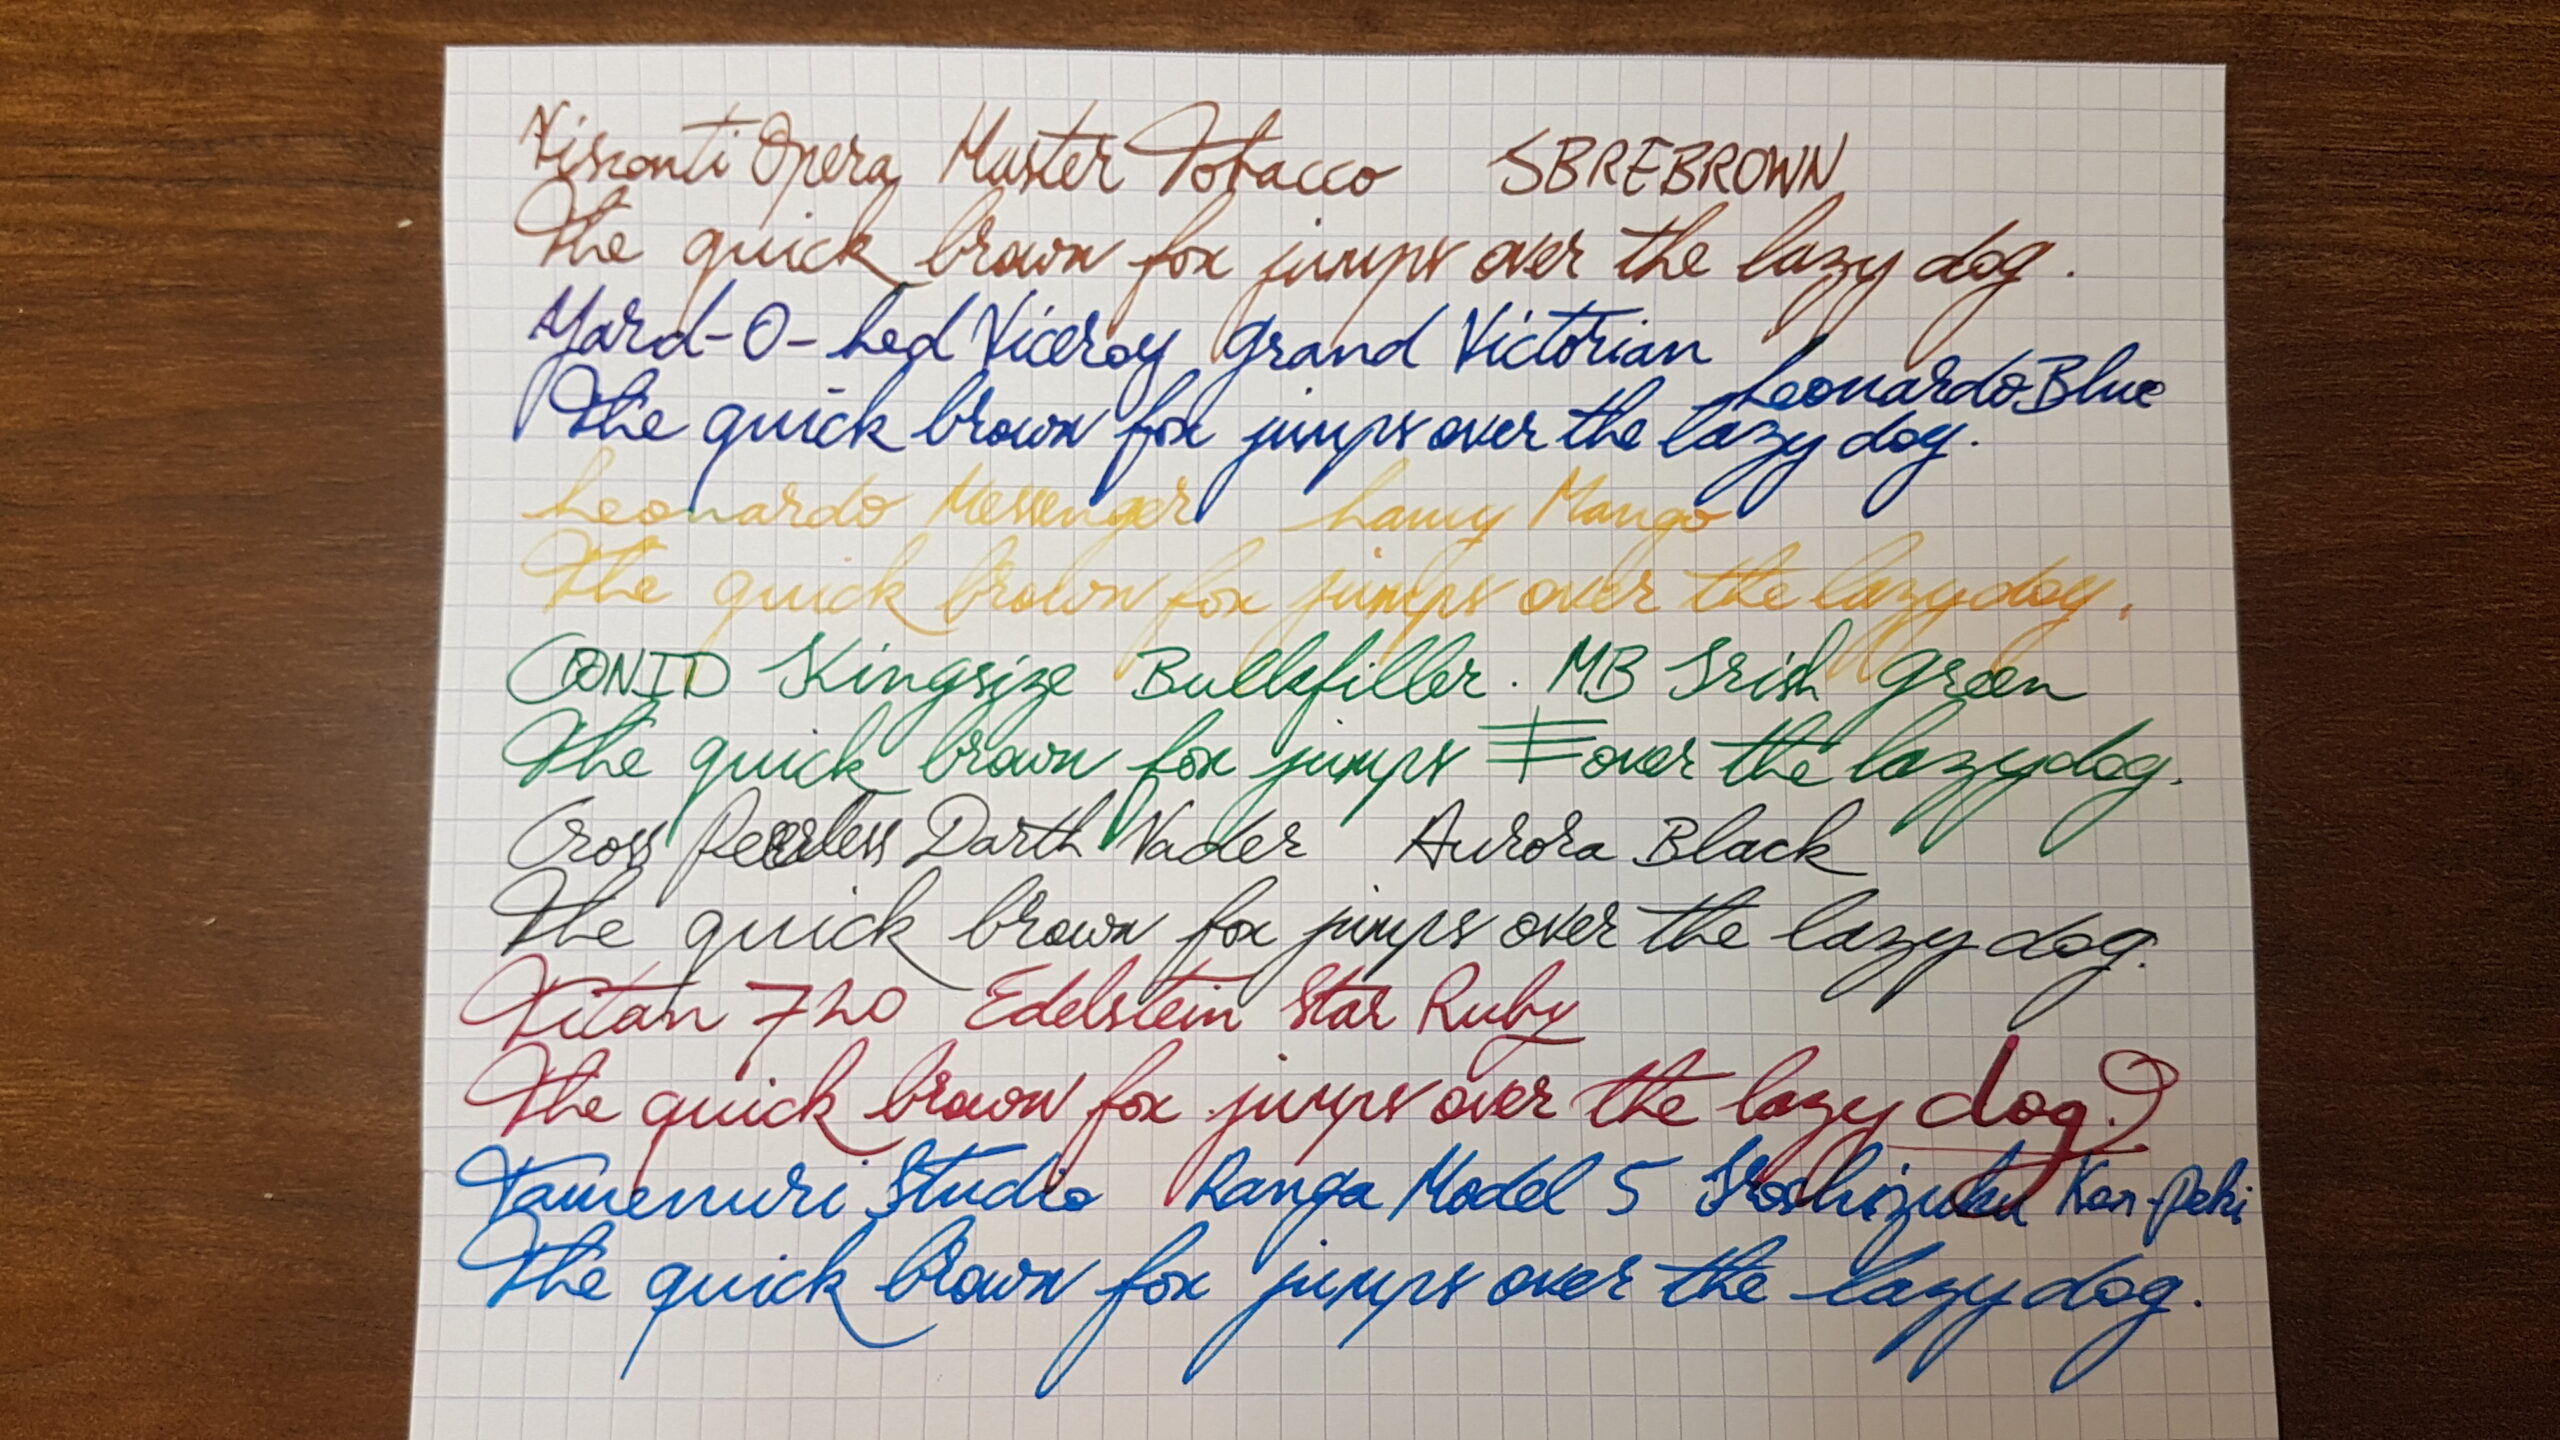 Visconti Opera Master Tobacco SBREBROWN
The quick brown fox jumps over the lazy dog.
Yard-O-Led Viceroy Grand Victorian
Leonardo Blue
The quick brown fox jumps over the lazy dog.
Leonardo Messenger Lamy Mango
The quick brown fox jumps over the lazy dog.
CONID Kingsize Bulkfiller. MB Irish Green
The quick brown fox jumps over the lazy dog.
Cross Peerless Darth Vader Aurora Black
The quick brown fox jumps over the lazy dog.
Titan 720 Edelstein Star Ruby
The quick brown fox jumps over the lazy dog.
Tamenuri Studio Ranga Model 5 Iroshizuku Kon-peki
The quick brown fox jumps over the lazy dog.